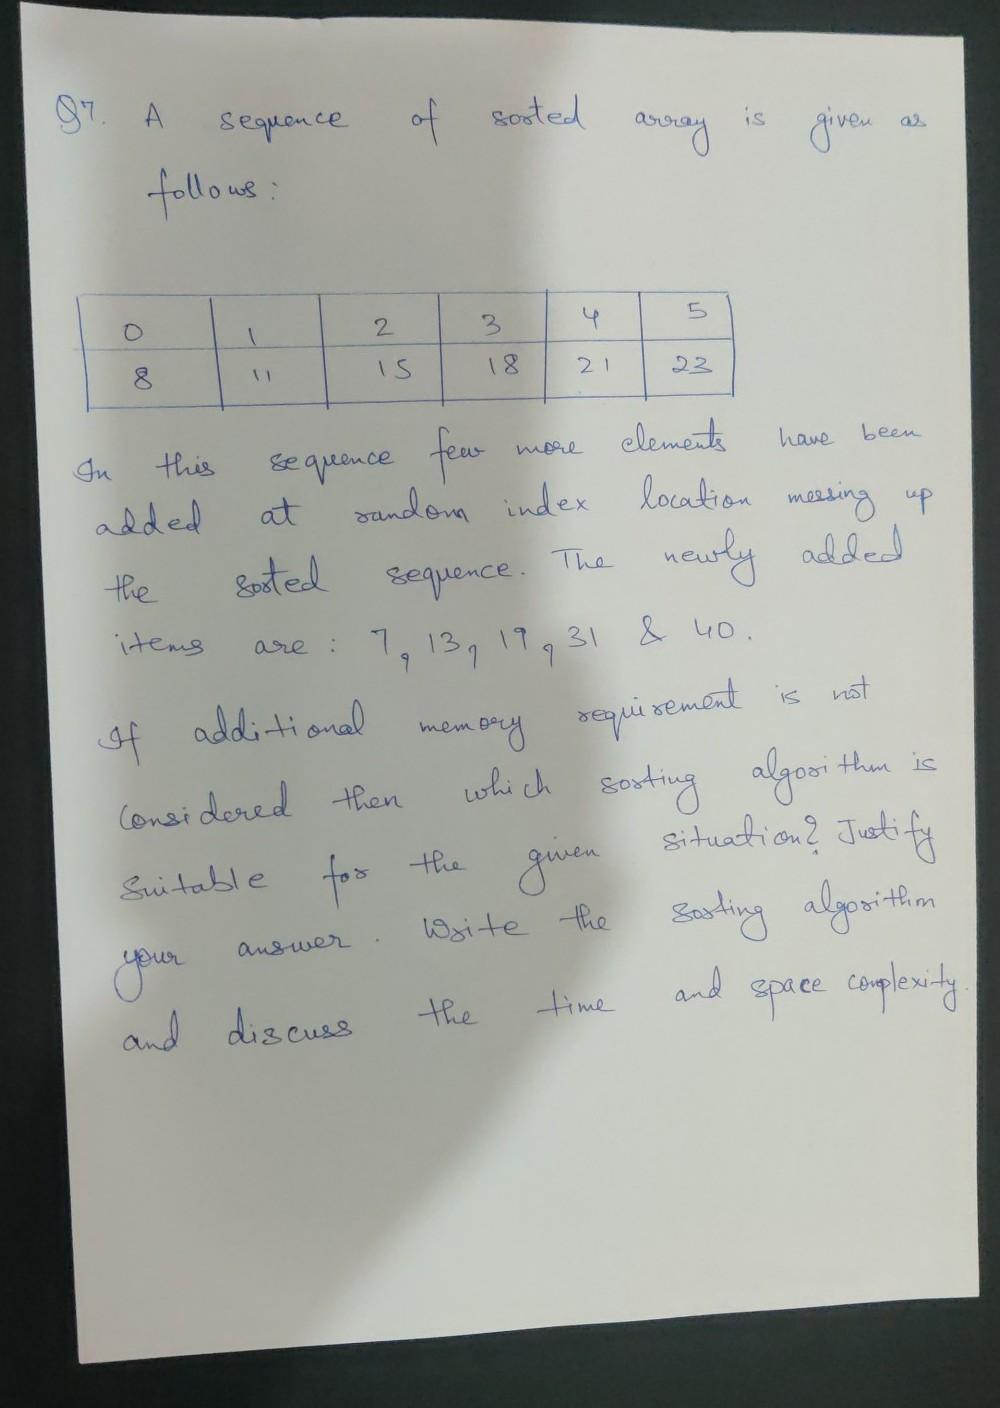 Q7. A sequence of sorted array is given as
follows:
0 1 2 3 4 5
8 11 15 18 21 23
In this sequence few more elements have been
added at random index location messing up
the sorted sequence. The newly added
items are : 7, 13, 19, 31 & 40.
If additional memory requirement is not
considered then which sorting algorithm is
suitable for the given situation? Justify
your answer. Write the sorting algorithm
and discuss the time and space complexity.